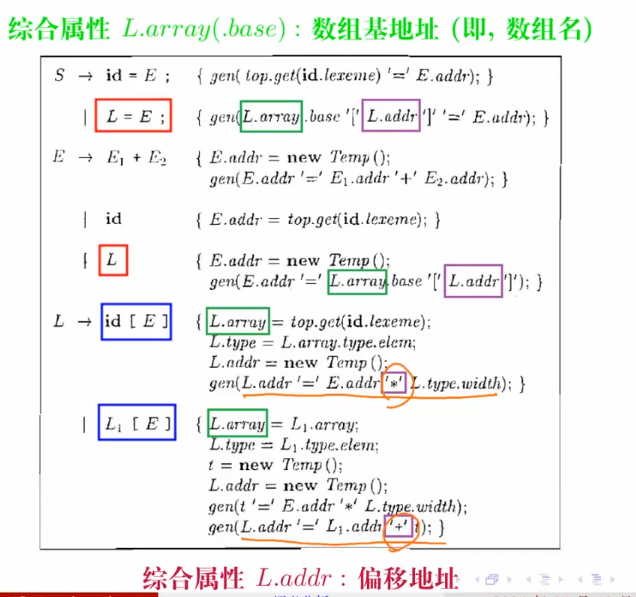 综合属性 L.array(.base) : 数组基地址 (即, 数组名)
S → id = E ; { gen( top.get(id.lexeme) '=' E.addr); }
| L = E ; { gen(L.array.base '[' L.addr ']' '=' E.addr); }
E → E₁ + E₂ { E.addr = new Temp();
gen(E.addr '=' E₁.addr '+' E₂.addr); }
| id { E.addr = top.get(id.lexeme); }
| L { E.addr = new Temp();
gen(E.addr '=' L.array.base '[' L.addr ']'); }
L → id [ E ] { L.array = top.get(id.lexeme);
L.type = L.array.type.elem;
L.addr = new Temp();
gen(L.addr '=' E.addr '*' L.type.width); }
| L₁ [ E ] { L.array = L₁.array;
L.type = L₁.type.elem;
t = new Temp();
L.addr = new Temp();
gen(t '=' E.addr '*' L.type.width);
gen(L.addr '=' L₁.addr '+' t); }
综合属性 L.addr : 偏移地址